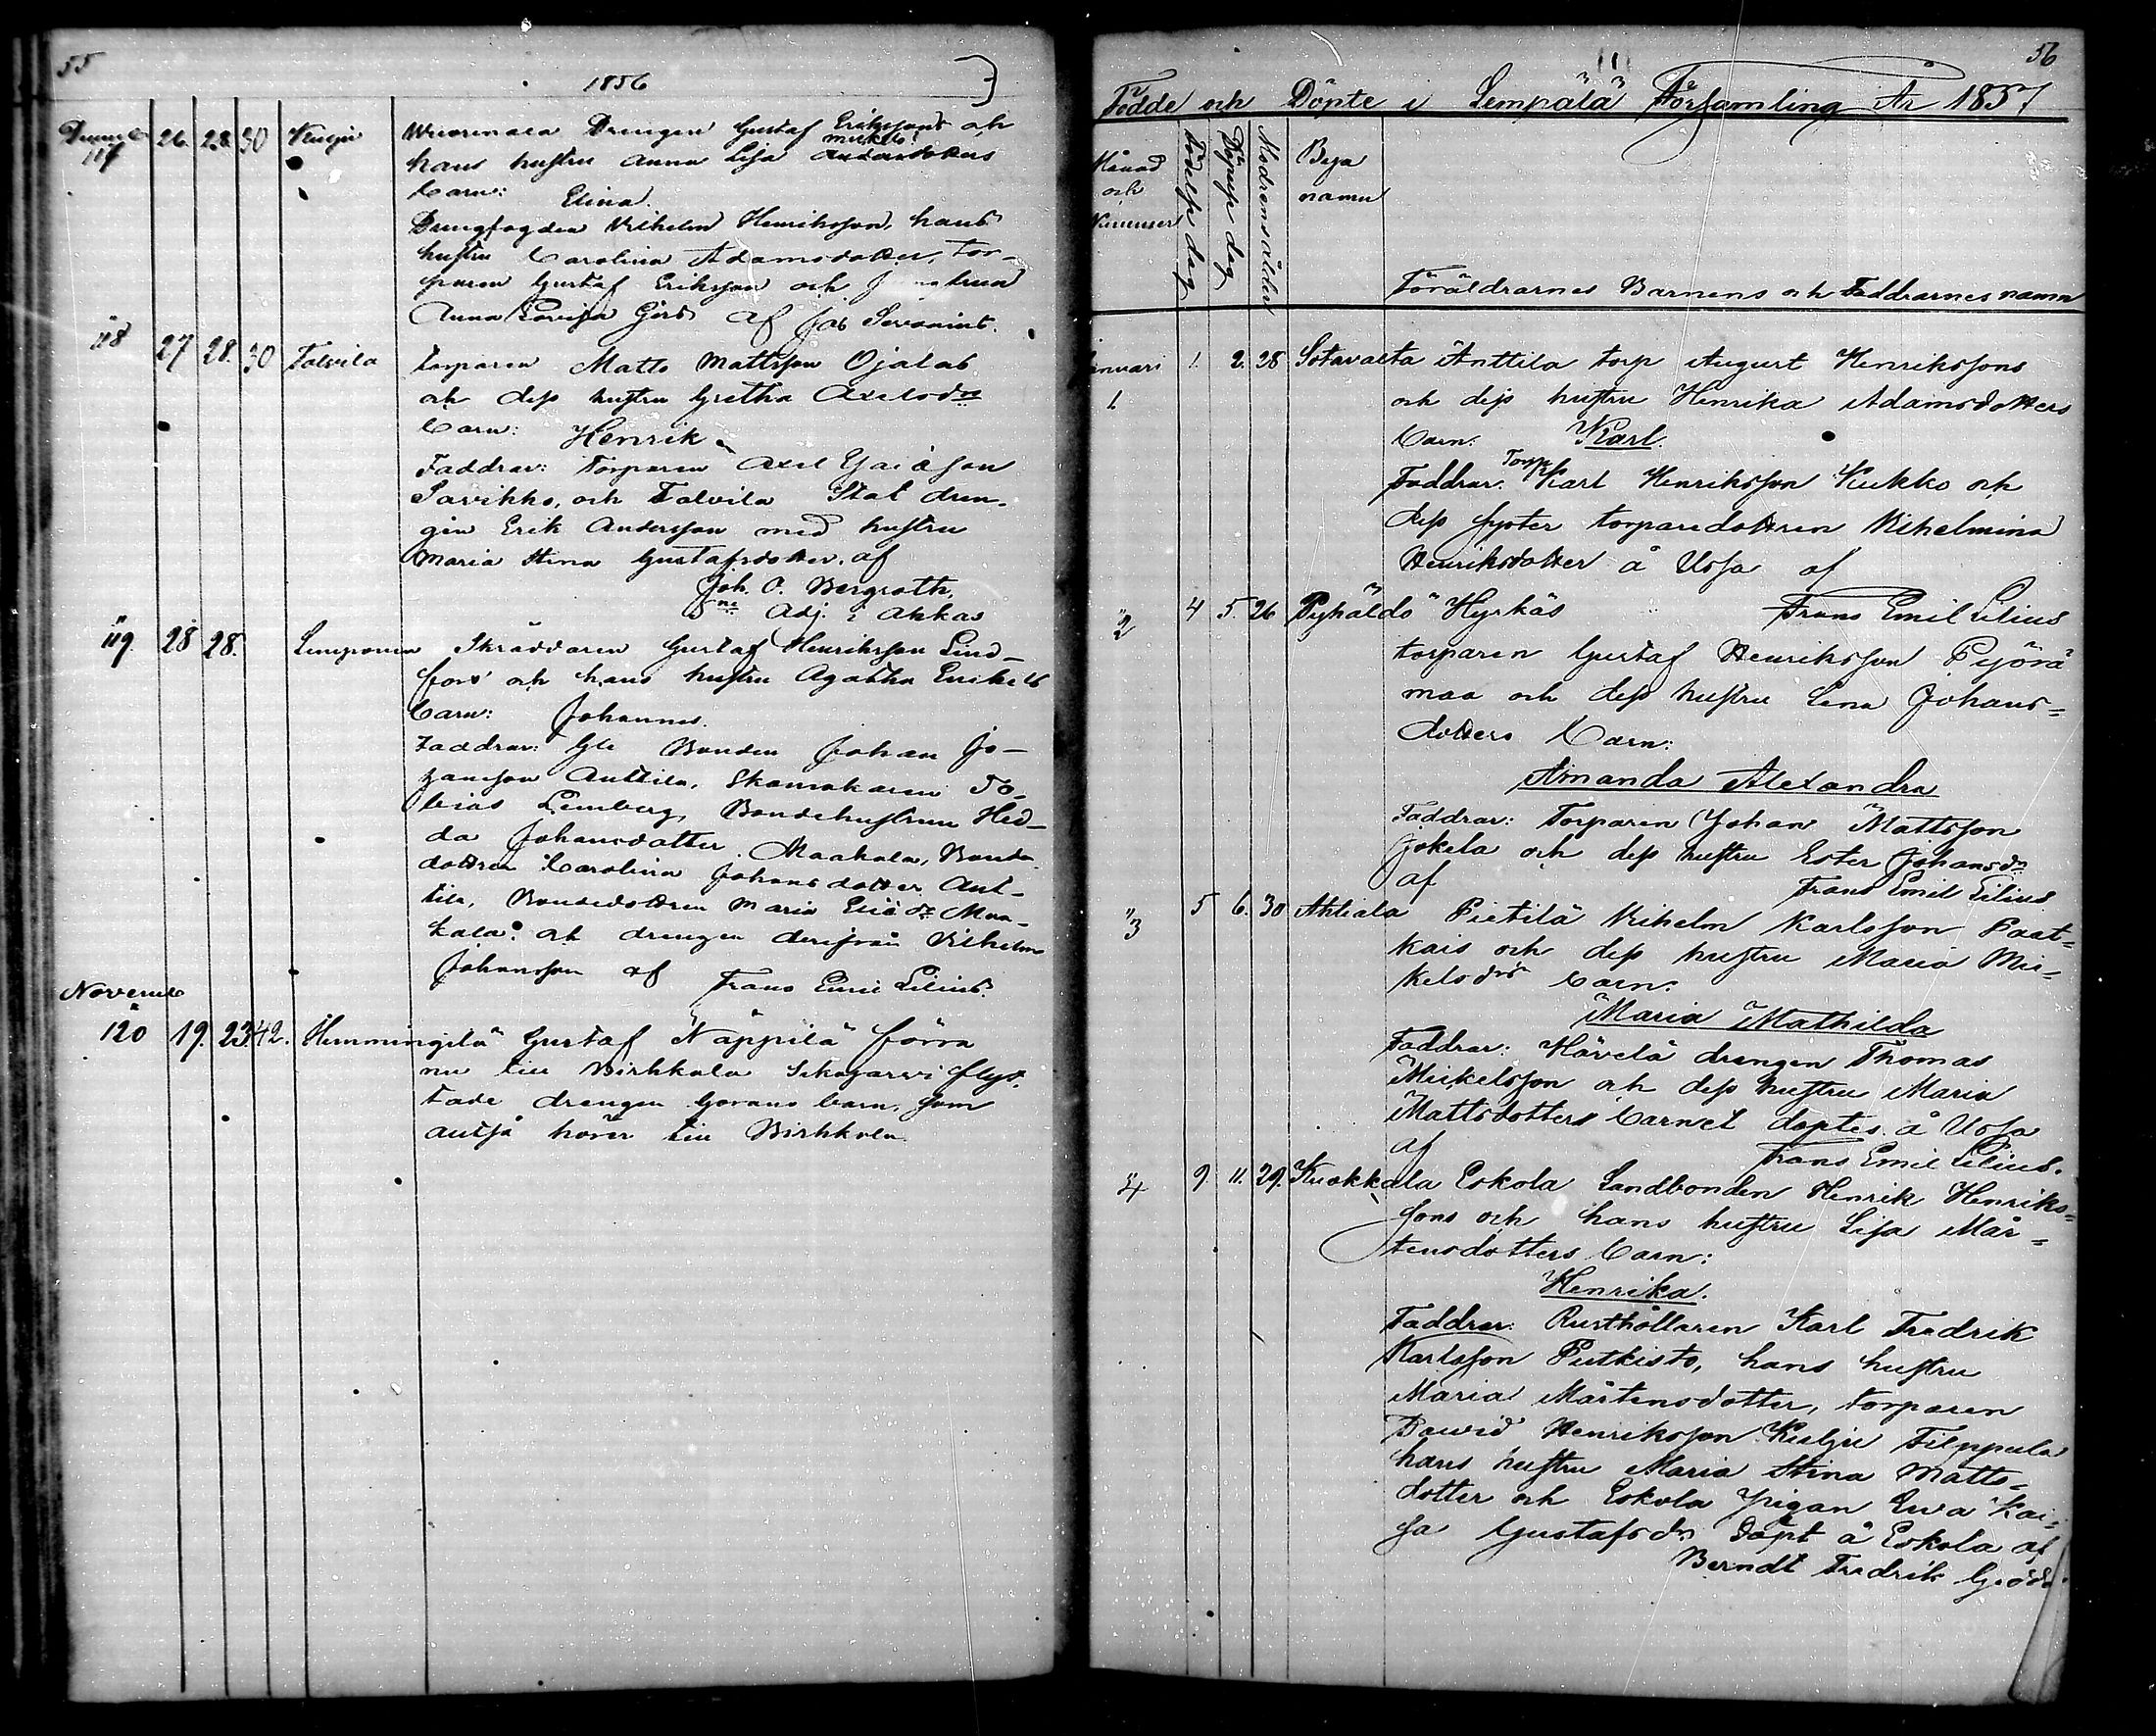 55
1856
Decemb. 26. 28. 30 Kulju Wuorenala Drengen Gustaf Erikssons och
117 hans hustru Anna Lisa Mickels
barn: Elina.
Drengfogden Vilhelm Henriksson, hans
hustru Carolina Adamsdotter, Tor-
paren Gustaf Eriksson och
Anna Lovisa Girs af Jac Sevonius.
118 27 28. 30 Talvila Torparen Matts Mattsson Ojalas
och dess hustru Gretha Axelsdrs
barn: Henrik
Faddrar: Torparen Axel
Savikko, och Talvila Stat dren-
gen Erik Andersson med hustru
Maria Stina Gustafsdotter. af
Joh. O. Bergroth,
Adj. i Akkas
119. 28 28. Lemponen Skräddaren Gustaf Henriksson Lind-
fors och hans hustru Agatha Eriks
barn: Johannes.
Faddrar: Gle Bonden Johan Jo-
hansson Anttila, Skomakaren To-
bias Lemberg, Bondehustrun Hed-
da Johansdotter Maakala, Bonde
dottren Carolina Johansdotter Ant-
tila, Bondedottren Maria Maa-
kala och drengen derifrån Vilhelm
Johansson af Frans Emil Lilius.
Novemb
120 19. 23. 42. Hemmingilä Gustaf Näppilä förra
nu till Birkkala Sikojarwi flyt-
tade drengen Görans barn, som
altså hörer till Birkkala.
(1) 56
Födde och Döpte i Lempälä Församling År 1857
Månad och Nummer Födelse dag Döpnse dag Modrens ålder Bya namn
Föräldrarnes Barnens och Faddrarnes namn
Januari 1. 2. 28 Sotavalta Anttila torp August Henrikssons
1 och dess hustru Henrika Adamsdotters
barn: Karl.
Faddrar: Torp. Karl Henriksson Kukko och
dess syster torparedottren Vilhelmina
Henriksdotter å Ussa af
2 4 5. 26 Pyhäldö Hyrkäs Frans Emil Lilius
torparen Gustaf Henriksson Pyörä
maa och dess hustru Lena Johans=
dotters barn:
Amanda Alexandra
Faddrar: Torparen Johan Mattsson
Jokela och dess hustru Ester Johansdr
af Frans Emil Lilius
3 5 6. 30 Ahtiala Pietilä Vilhelm Karlsson Paat=
kais och dess hustru Maria Mic=
kelsdrs barn.
Maria Mathilda
Faddrar: Hävelä drengen Thomas
Mickelsson och dess hustru Maria
Mattsdotters barnet döptes å Ussa
af Frans Emil Lilius.
4 9 11. 29. Kuokkala Eskola Landbonden Henrik Henriks=
sons och hans hustru Lisa Mår=
tensdotters barn:
Henrika.
Faddrar: Rusthållaren Karl Fredrik
Karlsson Putkisto, hans hustru
Maria Mårtensdotter, torparen
Dawid Henriksson Kulju Filppula
hans hustru Maria Stina Matts=
dotter och Eskola pigan Ewa Kai=
sa Gustafsdr. Döpt å Eskola af
Berndt Fredrik